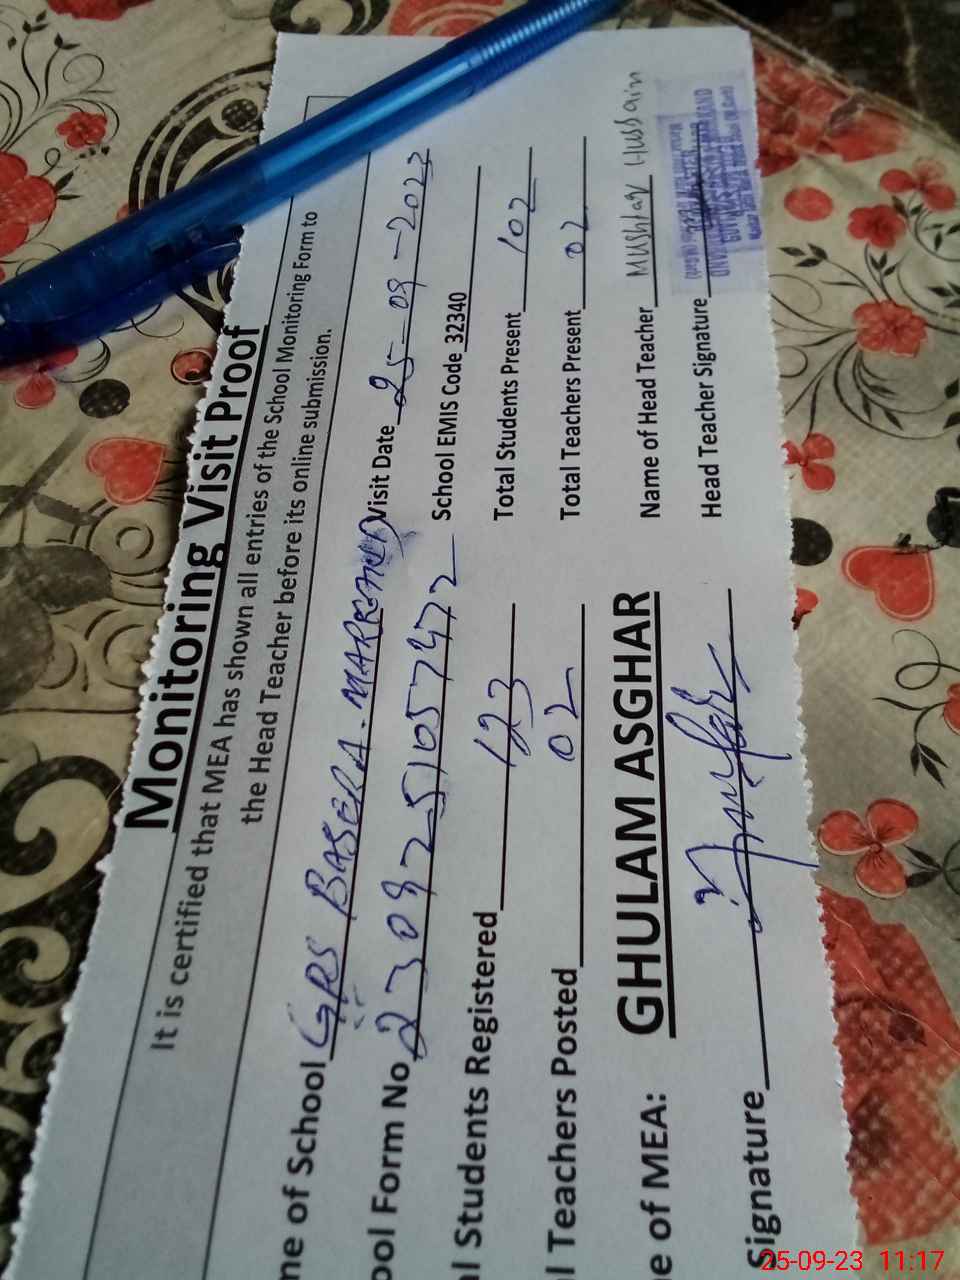 Monitoring Visit Proof
It is certified that MEA has shown all entries of the School Monitoring Form to
the Head Teacher before its online submission.
me of School GPS BASERA-MARKHAND Visit Date 25-09-2023
ool Form No 2309251057472 School EMIS Code 32340
l Students Registered 123 Total Students Present 102
l Teachers Posted 02 Total Teachers Present 02
e of MEA: GHULAM ASGHAR Name of Head Teacher Mushtaq Hussain
Signature Head Teacher Signature
25-09-23 11:17